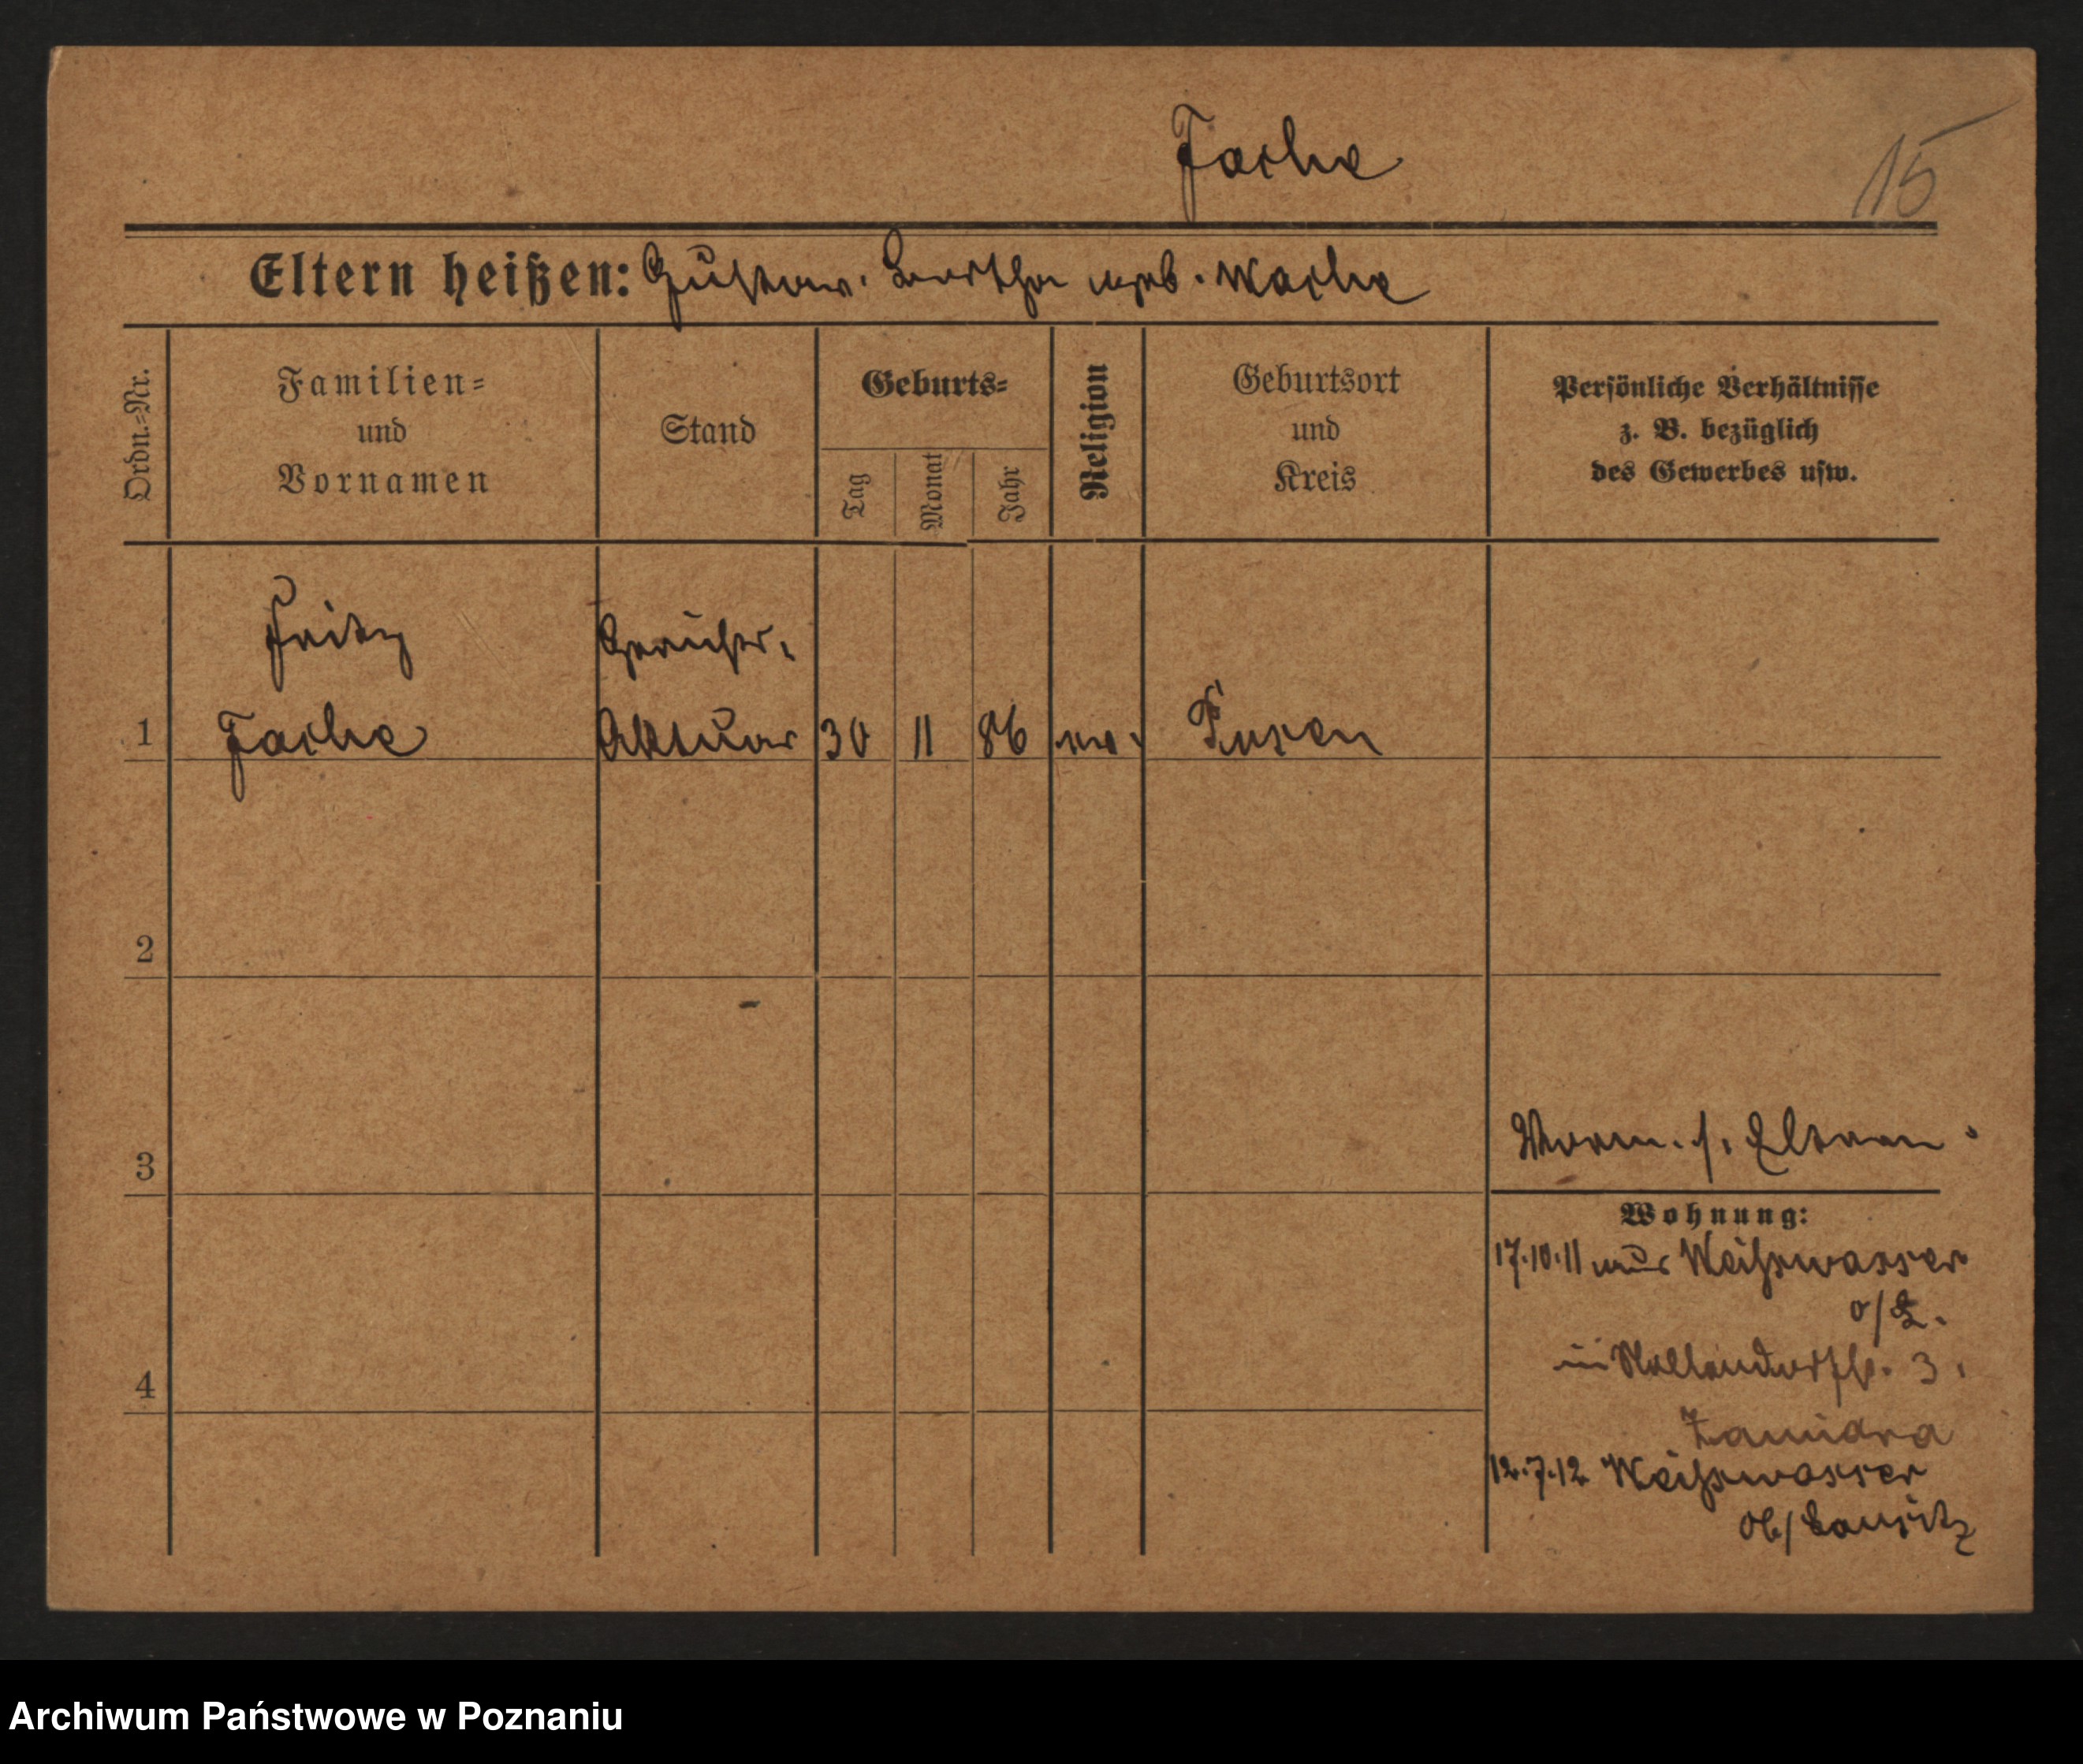 Fache
15
Eltern heißen: Gustav. Bertha geb. Wache
Ordn.=Nr.
Familien=
und
Vornamen
Stand
Geburts=
Tag
Monat
Jahr
Religion
Geburtsort
und
Kreis
Persönliche Verhältnisse
z. B. bezüglich
des Gewerbes usw.
Fritz
Gerichts.
1 Fache Aktuar 30 11 86 ev. Posen
2
3
4
s. Eltern
Wohnung:
17.10.11 aus Weißwasser
o/L.
in Nollendorfstr. 3.
12.7.12 Weißwasser
Ob/Lausitz
Archiwum Państwowe w Poznaniu